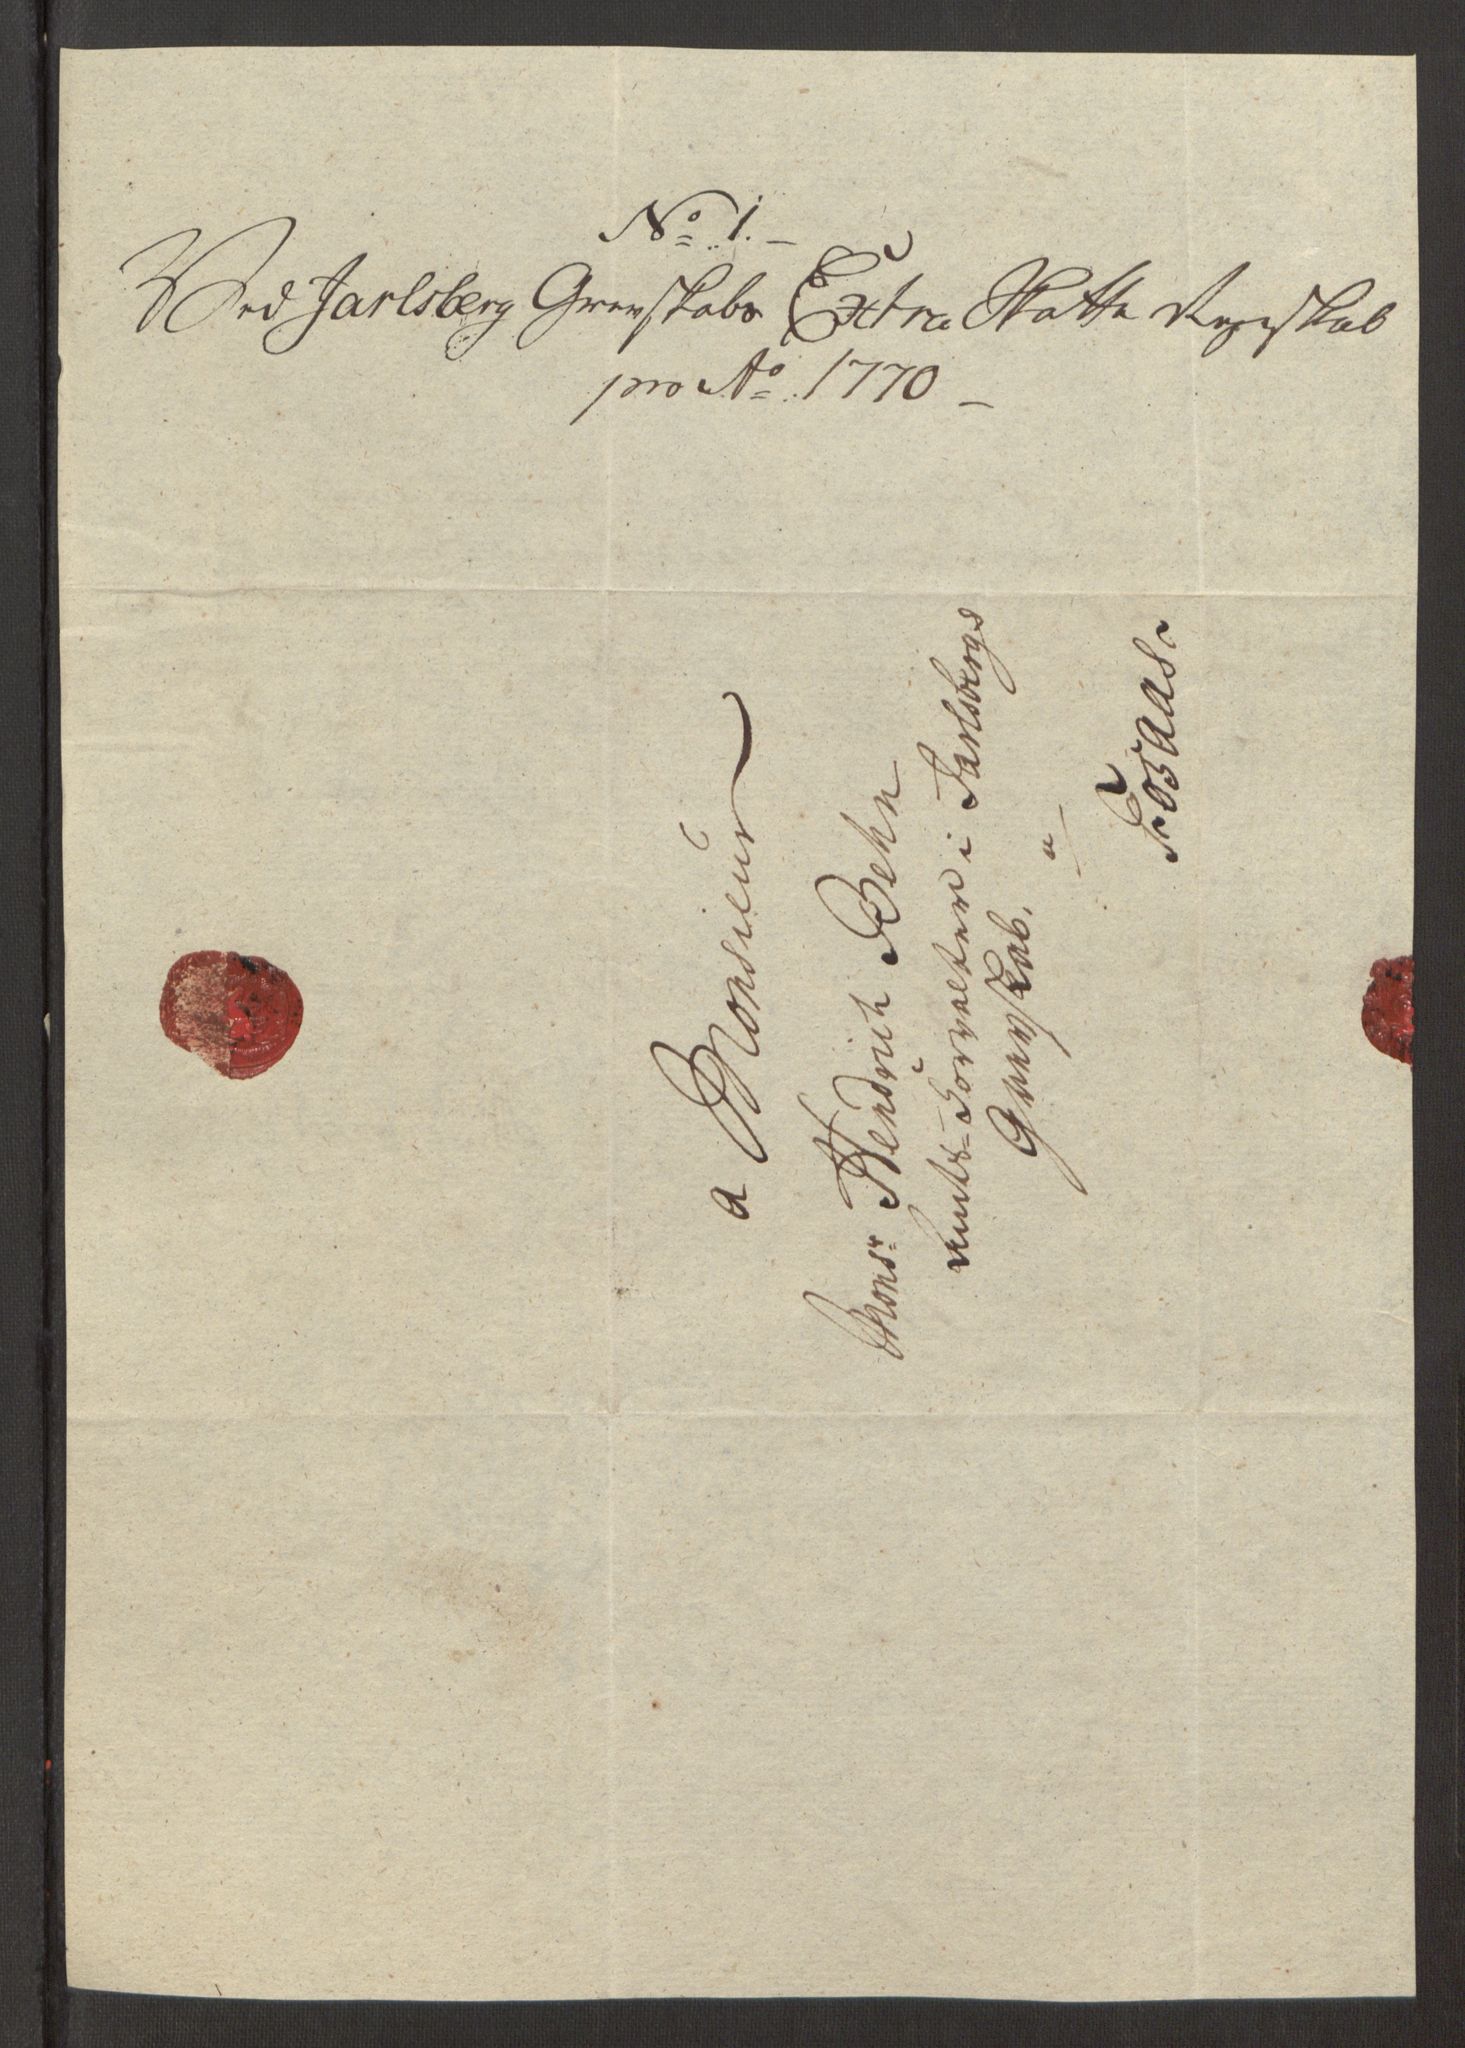 No 1.
Ved Jarlsberg Grevskabs Extra Skatte Regenskab
pro Ao. 1770
a Monsieur
Monsr Hendrich Behn
Amts-Forvalter i Jarlsbergs
Grevskab.
a
Foßaas.